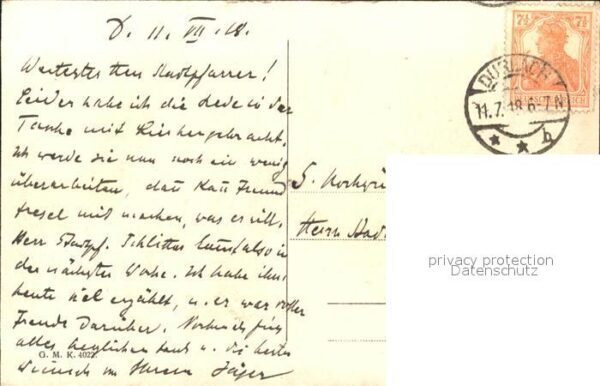 D. 11. VII. 18.
Wertester Herr Stadtpfarrer!
Leider habe ich die Rede in der
Tasche mit hierhergebracht.
Ich werde sie nun noch ein wenig
überarbeiten, dann kann Freund
mit machen, was er will.
Herr Stadtpf. also in
der nächsten Woche. Ich habe ihm
heute viel erzählt, u. er war voller
Freude darüber. Nochmals für
alles herzlichen Dank u. die besten
Wünsche von Ihrem Jäger
7½ 7½
DEUTSCHES REICH
DURLACH
11.7.18.6-7N
* * b
S. Hochwü
Herrn Stad
privacy protection
Datenschutz
G. M. K. 4022.